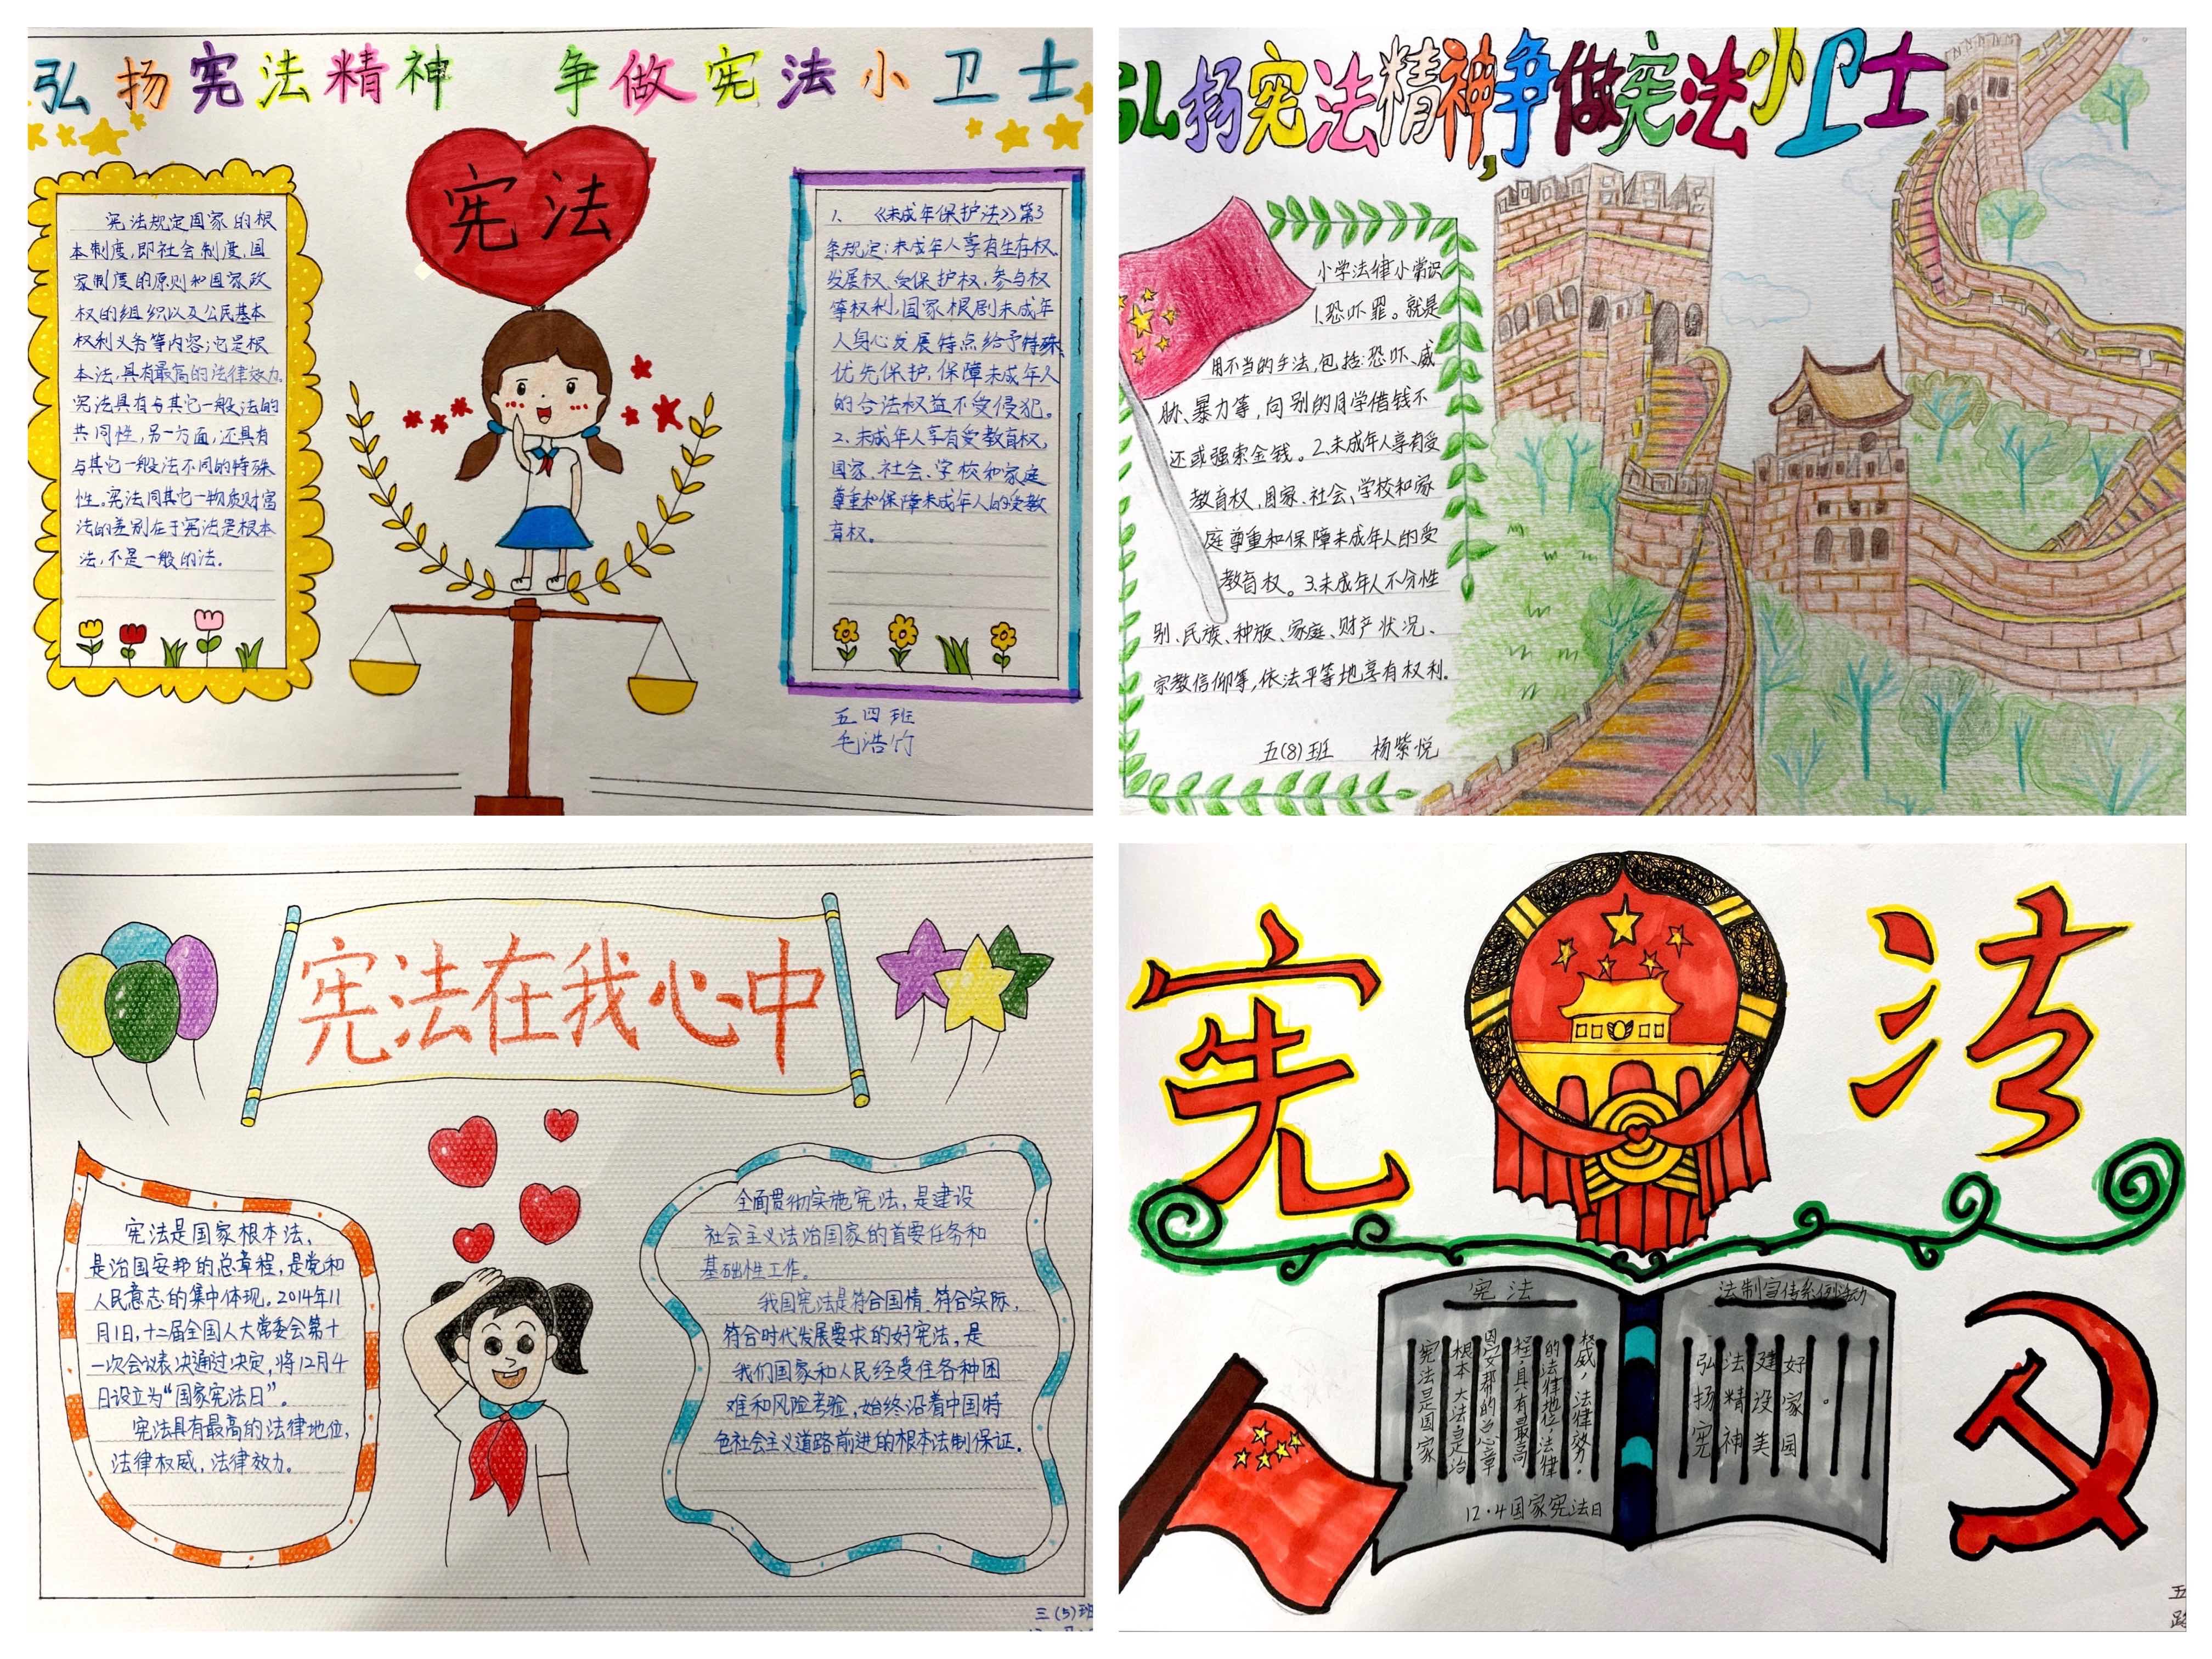 弘扬宪法精神 争做宪法小卫士
宪法
宪法规定国家的根
本制度,即社会制度、国
家制度的原则和国家政
权的组织以及公民基本
权利义务等内容;它是根
本法,具有最高的法律效力。
宪法具有与其它一般法的
共同性,另一方面,还具有
与其它一般法不同的特殊
性。宪法同其它一物质财富
法的差别在于宪法是根本
法,不是一般的法。
1、《未成年保护法》第3
条规定:未成年人享有生存权、
发展权、受保护权、参与权
等权利,国家根剧未成年
人身心发展特点给予特殊、
优先保护,保障未成年人
的合法权益不受侵犯。
2、未成年人享有受教育权,
国家、社会、学校和家庭
尊重和保障未成年人的受教
育权。
五四班
毛浩竹
弘扬宪法精神,争做宪法小卫士
小学法律小常识
1、恐吓罪。就是
用不当的手法,包括:恐吓、威
胁、暴力等,向别的同学借钱不
还或强索金钱。2.未成年人享有受
教育权,国家、社会、学校和家
庭尊重和保障未成年人的受
教育权。3.未成年人不分性
别、民族、种族、家庭、财产状况、
宗教信仰等,依法平等地享有权利.
五(8)班 杨紫悦
宪法在我心中
宪法是国家根本法、
是治国安邦的总章程,是党和
人民意志的集中体现。2014年11
月1日,十二届全国人大常委会第十
一次会议表决通过决定,将12月4
日设立为“国家宪法日”。
宪法具有最高的法律地位,
法律权威,法律效力。
全面贯彻实施宪法,是建设
社会主义法治国家的首要任务和
基础性工作。
我国宪法是符合国情、符合实际,
符合时代发展要求的好宪法,是
我们国家和人民经受住各种困
难和风险考验,始终沿着中国特
色社会主义道路前进的根本法制保证.
三(5)班
宪法
宪法
宪法是国家
根本大法,是治
国安邦的总章
程,具有最高
的法律地位,法律
权威,法律效务。
12·4国家宪法日
法制宣传系例活动
弘扬宪
法精神
建设美
好家园
。
五